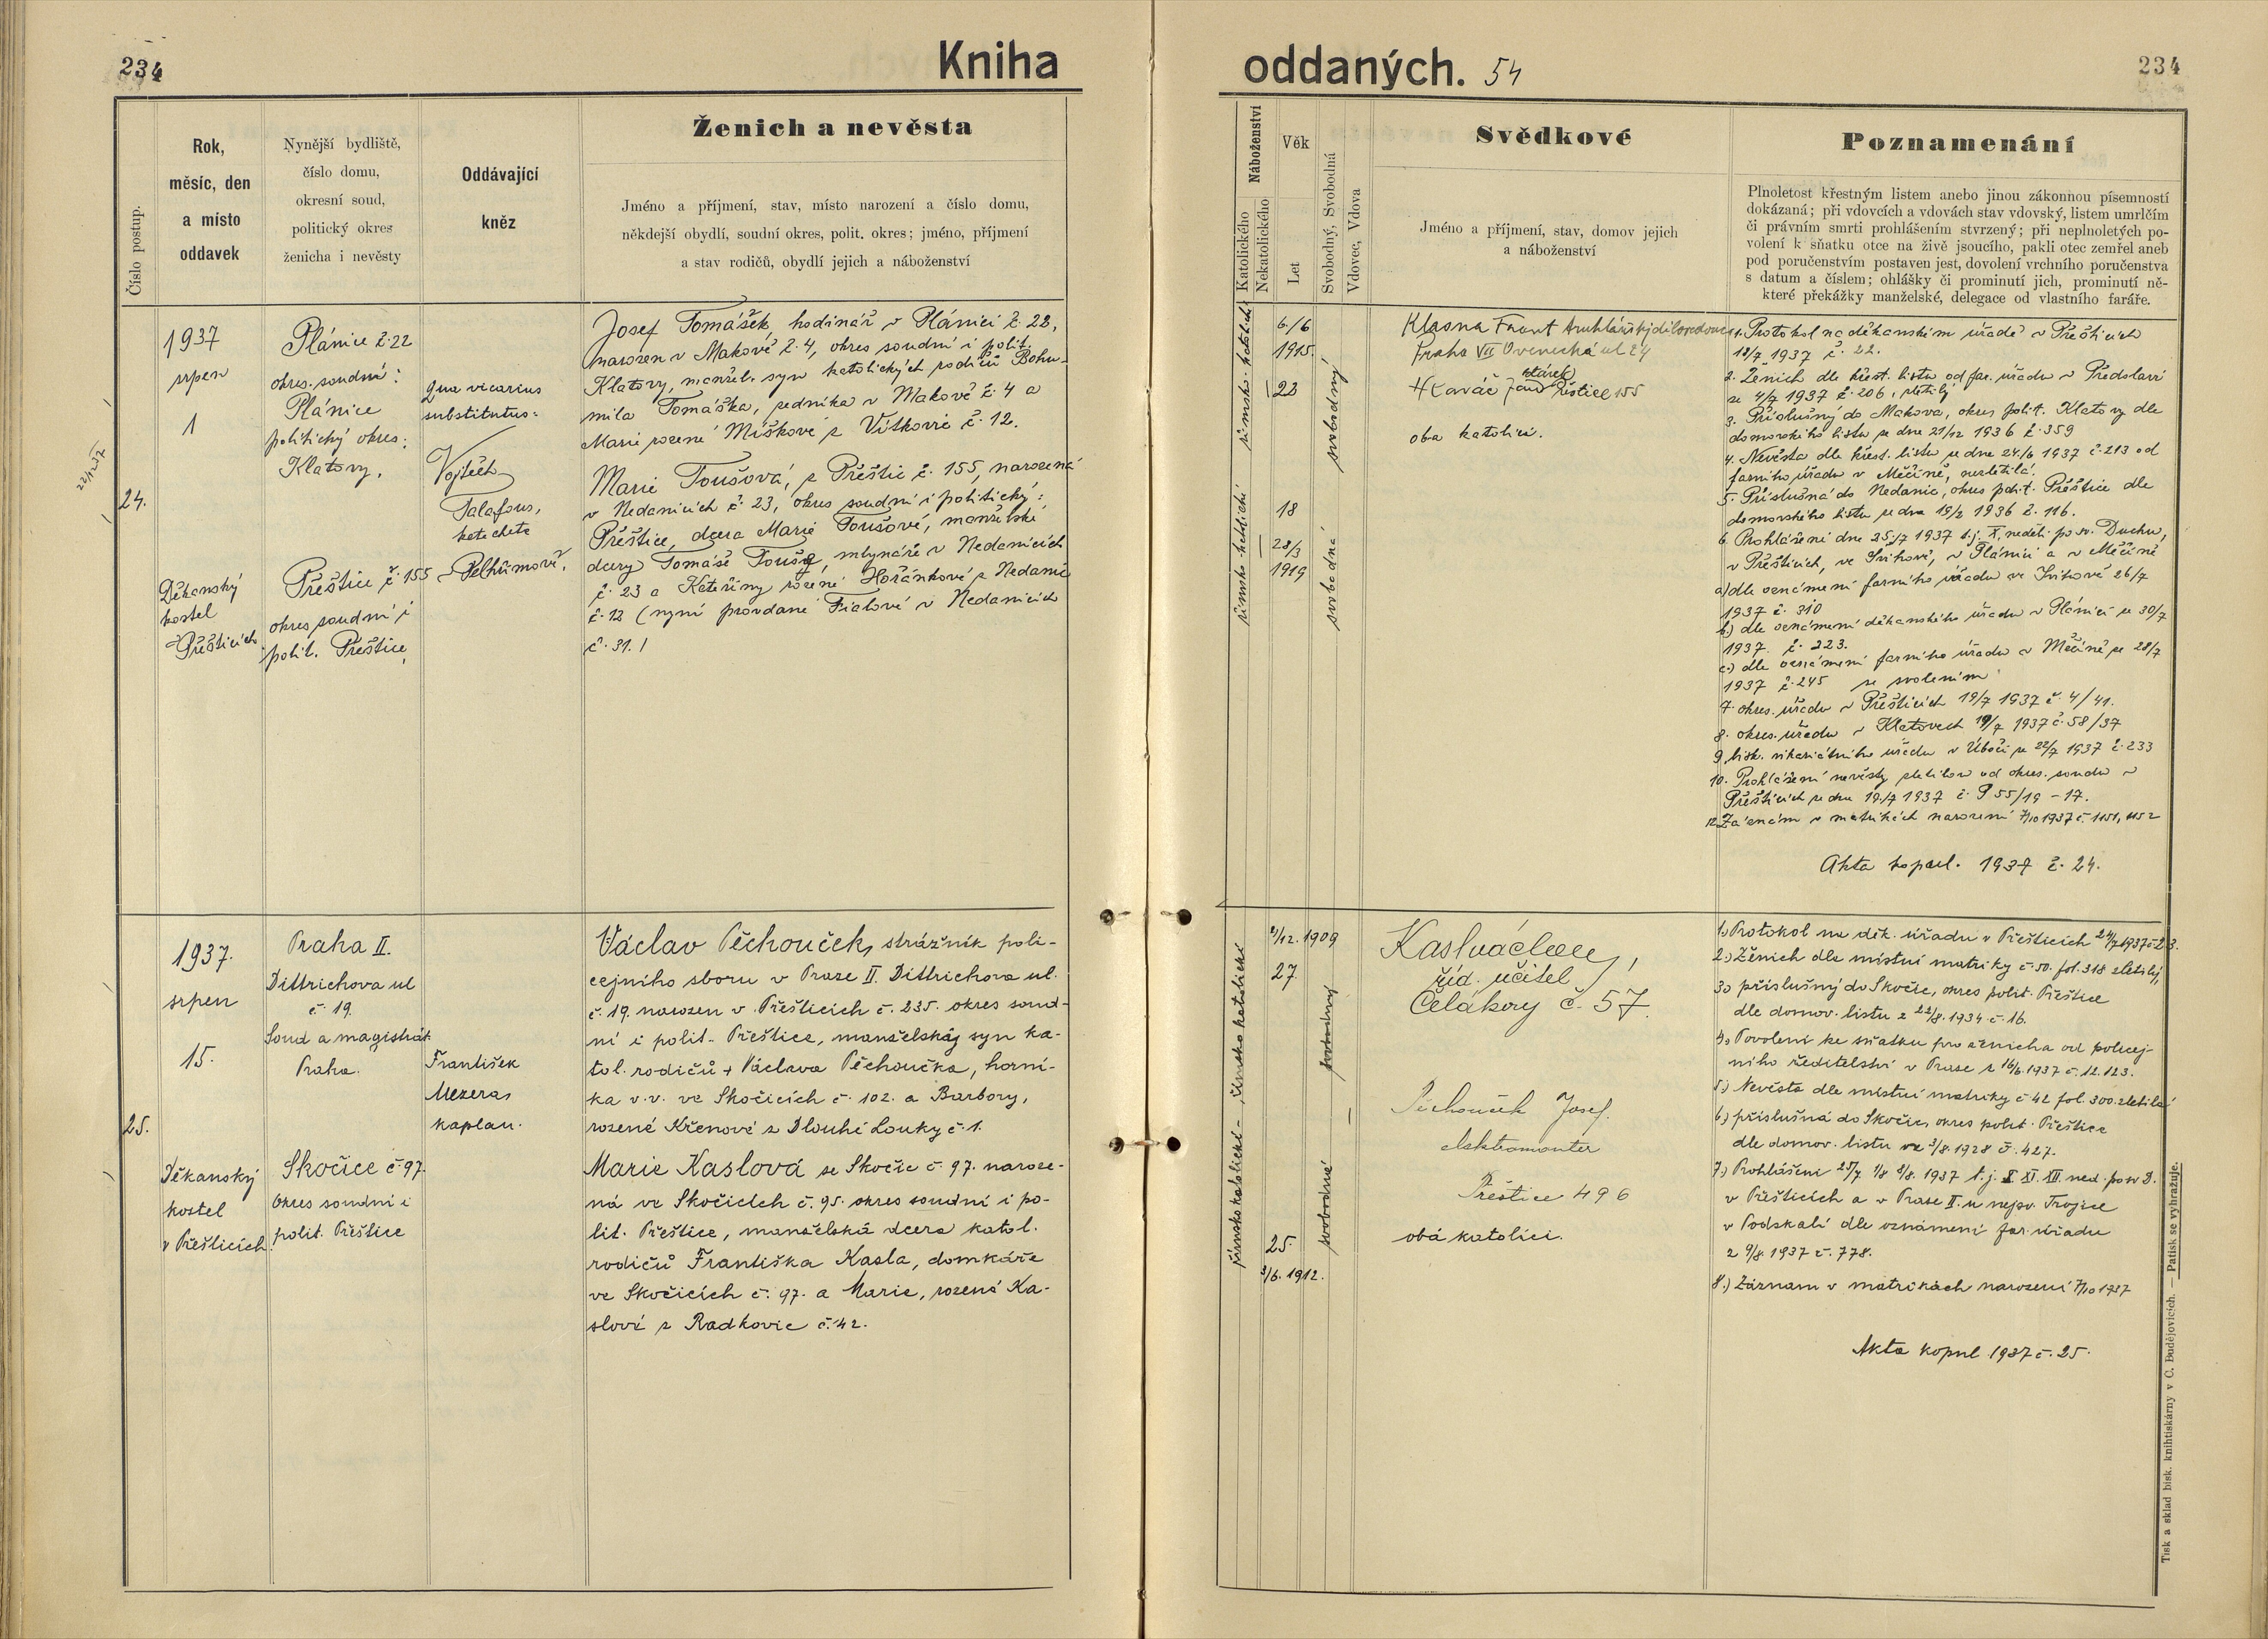 234
Kniha
oddaných. 54
234
Číslo postup.
Rok,
měsíc, den
a místo
oddavek
Nynější bydliště,
číslo domu,
okresní soud,
politický okres
ženicha i nevěsty
Oddávající
kněz
Ženich a nevěsta
Jméno a příjmení, stav, místo narození a číslo domu,
někdejší obydlí, soudní okres, polit. okres; jméno, příjmení
a stav rodičů, obydlí jejich a náboženství
Náboženství
Katolického
Nekatolického
Věk
Let
Svobodný, Svobodná
Vdovec, Vdova
Svědkové
Jméno a příjmení, stav, domov jejich
a náboženství
Poznamenání
Plnoletost křestným listem anebo jinou zákonnou písemností
dokázaná; při vdovcích a vdovách stav vdovský, listem umrlčím
či právním smrti prohlášením stvrzený; při neplnoletých po-
volení k sňatku otce na živě jsoucího, pakli otec zemřel aneb
pod poručenstvím postaven jest, dovolení vrchního poručenstva
s datum a číslem; ohlášky či prominutí jich, prominutí ně-
které překážky manželské, delegace od vlastního faráře.
24.
1937
srpen
1
Děkanský
kostel
v Přešticích
Plánice č. 22
okres. soudní:
Plánice
politický okres:
Klatovy.
Přeštice č. 155
okres soudní i
polit. Přeštice
qua vicarius
substitutus:
Vojtěch
Talafous,
katecheta
v Pelhřimově.
Josef Tomášek, hodinář v Plánici č. 22,
narozen v Makově č. 4, okres soudní i polit.
Klatovy, manžel. syn katolických rodičů Bohu-
mila Tomáška, rolníka v Makově č. 4 a
Marie rozené Míškove z Vítkovic č. 12.
Marie Toušová, z Přeštic č. 155, narozená
v Nedanicích č. 23, okres soudní i politický:
Přeštice, dcera Marie Toušové, manželské
dcery Tomáše Touše, mlynáře v Nedanicích
č. 23 a Kateřiny rozené Hořánkové z Nedanic
č. 12 (nyní provdané Fialové v Nedanicích
č. 31.)
římsko-katolické
římsko-katolické
6./6
1915.
22
18
28/3
1919
svobodný
svobodná
Klasna Frant truhlářský
Praha VII Ovenecká ul 24
Hlaváč Jan stárek Přeštice 155
oba katolíci.
1. Protokol na děkanském úřadě v Přešticích
18/7 1937 č. 22.
2. Ženich dle křest. listu od far. úřadu v Předslavi
ze 4/7 1937 č. 206, zletilý
3. Příslušný do Makova, okres polit. Klatovy dle
domovského listu ze dne 21/12 1936 č. 359
4. Nevěsta dle křest. listu ze dne 24./6 1937 č. 213 od
farního úřadu v Měčíně, nezletilá.
5. Příslušná do Nedanic, okres polit. Přeštice dle
domovského listu ze dne 19/2 1936 č. 116.
6. Prohlášení dne 25./7 1937 t.j. X. neděli po sv. Duchu,
v Přešticích, ve Švihově, v Plánici a v Měčíně
a) dle oznámení farního úřadu ve Švihově 26/7
1937 č. 310
b) dle oznámení děkanského úřadu v Plánici ze 30/7
1937. č. 223.
c) dle oznámení farního úřadu v Měčíně ze 28/7
1937 č. 245 se svolením
7. okres. úřadu v Přešticích 19/7 1937 č. 4/41.
8. okres. úřadu v Klatovech 19/7 1937 č. 58/37
9. bisk. vikariátního úřadu v Úboči ze 22/7 1937 č. 233
10. Prohlášení nevěsty zletilou od okres. soudu v
Přešticích ze dne 19./7 1937 č. P 55/19 - 17.
12. Záznam v matrikách narození 7/10 1937 č. 1151, 1152
Akta kopul. 1937 č. 24.
25.
1937.
srpen
15.
Děkanský
kostel
v Přešticích
Praha II.
Dittrichova ul
č. 19.
Soud a magistrát
Praha.
Skočice č. 97.
okres soudní i
polit. Přeštice
František
Mezera,
kaplan.
Václav Pěchouček, strážník poli-
cejního sboru v Praze II. Dittrichova ul.
č. 19. narozen v Přešticích č. 235. okres soud-
ní i polit. Přeštice, manželský syn ka-
tol. rodičů + Václava Pěchoučka, horní-
ka v.v. ve Skočicích č. 102. a Barbory,
rozené Křenové z Dlouhé Louky č. 1.
Marie Kaslová ze Skočic č. 97. naroze-
ná ve Skočicích č. 95. okres soudní i po-
lit. Přeštice, manželská dcera katol.
rodičů Františka Kasla, domkáře
ve Skočicích č. 97. a Marie, rozené Ka-
slové z Radkovic č. 42.
římsko katolické - římsko katolické
1909
27.
25.
3/6. 1912.
svobodný
svobodná
Kasl Václav,
říd. učitel
Čelákovy č. 57.
Pěchouček Josef.
elektromonter
Přeštice 496
obá katolíci.
1.) Protokol na děk. úřadu v Přešticích 24/7 1937 č. 23.
2.) Ženich dle místní matriky č. 50. fol. 318 zletilý,
3.) příslušný do Skočic, okres polit. Přeštice
dle domov. listu z 22/8. 1934. č. 16.
4.) Povolení ke sňatku pro ženicha od policej-
ního ředitelství v Praze z 16/6. 1937 č. 12.123.
5.) Nevěsta dle místní matriky č 42 fol. 300. zletilá
6.) příslušná do Skočic, okres polit. Přeštice
dle domov. listu ze 3/8. 1928 č. 427.
7.) Prohlášení 25/7 1/8 8/8. 1937 t.j. X XI. XII. ned. po sv D.
v Přešticích a v Praze II. u nejsv. Trojice
v Podskalí dle oznámení far. úřadu
z 9/8. 1937 č. 778.
8.) Záznam v matrikách narození 7/10 1937
Akta kopul 1937 č. 25.
Tisk a sklad bisk. knihtiskárny v C. Budějovicích. — Patisk se vyhražuje.